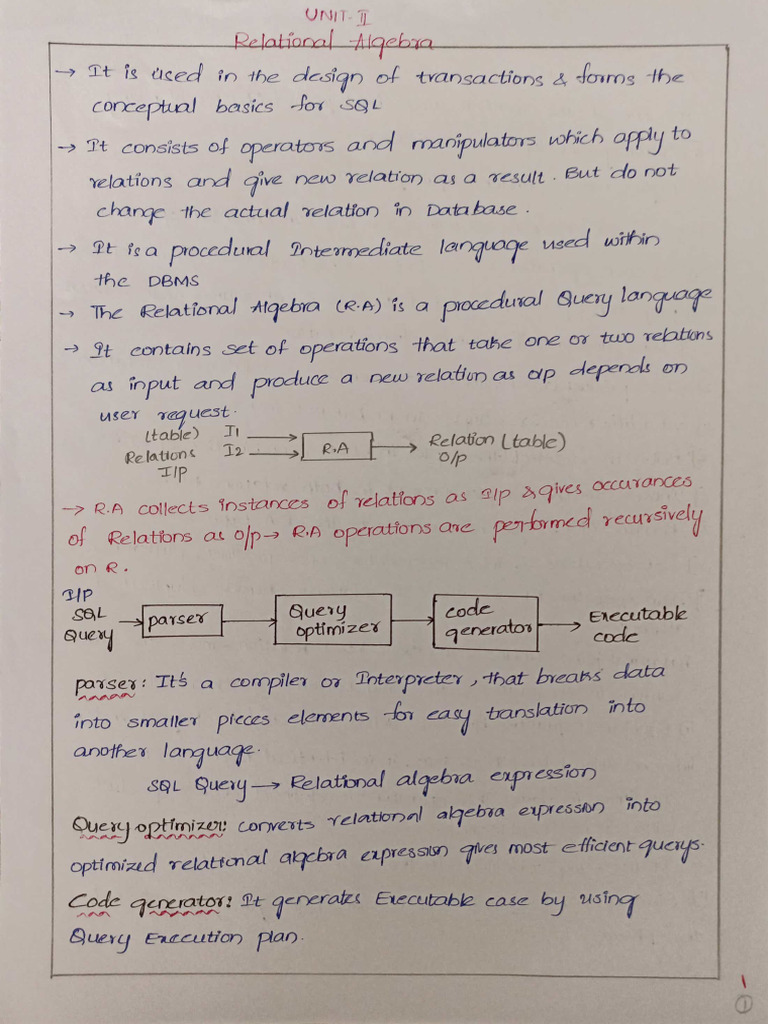 UNIT-II
Relational Algebra
→ It is used in the design of transactions & forms the
conceptual basics for SQL
→ It consists of operators and manipulators which apply to
relations and give new relation as a result. But do not
change the actual relation in Database.
→ It is a procedural Intermediate language used within
the DBMS
→ The Relational Algebra (R.A) is a procedural Query language
→ It contains set of operations that take one or two relations
as input and produce a new relation as o/p depends on
user request.
(table) I1
Relations I2
I/P
R.A
Relation (table)
O/p
→ R.A collects instances of relations as I/p & gives occurances
of Relations as o/p → R.A operations are performed recursively
on R.
I/P
SQL
Query
parser
Query
optimizer
code
generator
Executable
code
parser: It's a compiler or Interpreter, that breaks data
into smaller pieces elements for easy translation into
another language.
SQL Query → Relational algebra expression
Query optimizer: converts relational algebra expression into
optimized relational algebra expression gives most efficient querys.
Code generator: It generates Executable case by using
Query Execution plan.
1
1